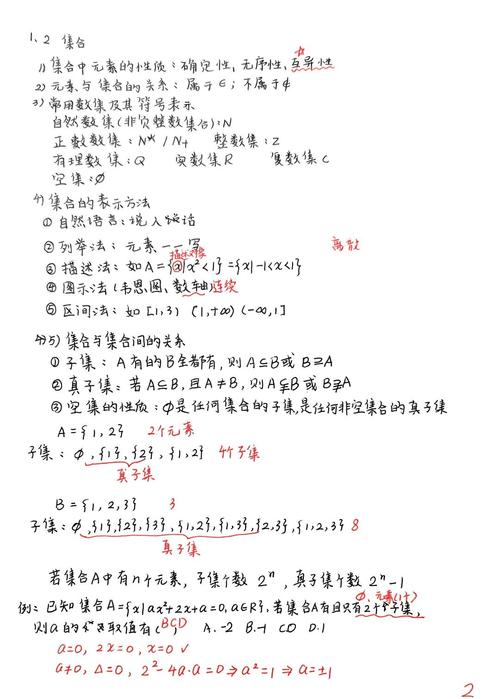 1、2 集合
1) 集合中元素的性质：确定性，无序性，互异性
2) 元素与集合的关系：属于∈；不属于∉
3) 常用数集及其符号表示
自然数集(非负整数集合):N
正数数集：N* / N+ 整数集：Z
有理数集：Q 实数集R 复数集C
空集：∅
4) 集合的表示方法
① 自然语言：说人话
② 列举法：元素一一写 离散
描述对象
③ 描述法：如A={x|x²<1}={x|-1<x<1}
④ 图示法(韦恩图、数轴)连续
⑤ 区间法：如 [1,3) (1,+∞) (-∞,1]
5) 集合与集合间的关系
① 子集：A有的B全都有，则A⊆B或 B⊇A
② 真子集：若A⊆B,且A≠B,则A⫋B 或 B⫌A
③ 空集的性质：∅是任何集合的子集,是任何非空集合的真子集
A={1,2} 2个元素
子集：∅,{1},{2},{1,2} 4个子集
真子集
B={1,2,3} 3
子集：∅,{1},{2},{3},{1,2},{1,3},{2,3},{1,2,3} 8
真子集
若集合A中有n个元素，子集个数 2ⁿ，真子集个数 2ⁿ-1
∅、元素(1个)
例：已知集合A={x|ax²+2x+a=0,a∈R},若集合A有且只有2个子集,
则a的取值有(BCD) A.-2 B.-1 C.0 D.1
a=0, 2x=0, x=0 ✓
a≠0, Δ=0, 2²-4a·a=0⇒a²=1⇒a=±1
2